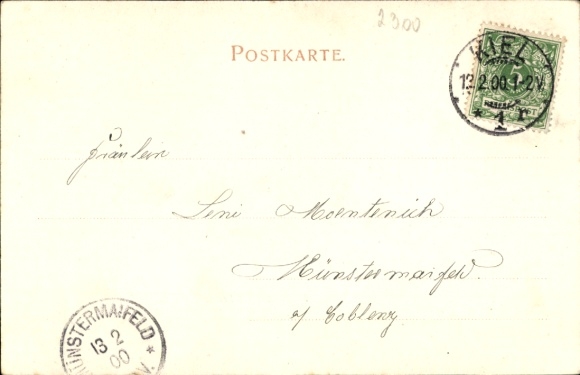 2300
POSTKARTE.
KIEL
13.2.00.1-2V.
* 1 r
Fräulein
Leni Moentenich
Münstermaifeld.
b/ Coblenz
MÜNSTERMAIFELD *
13 2
00
V.